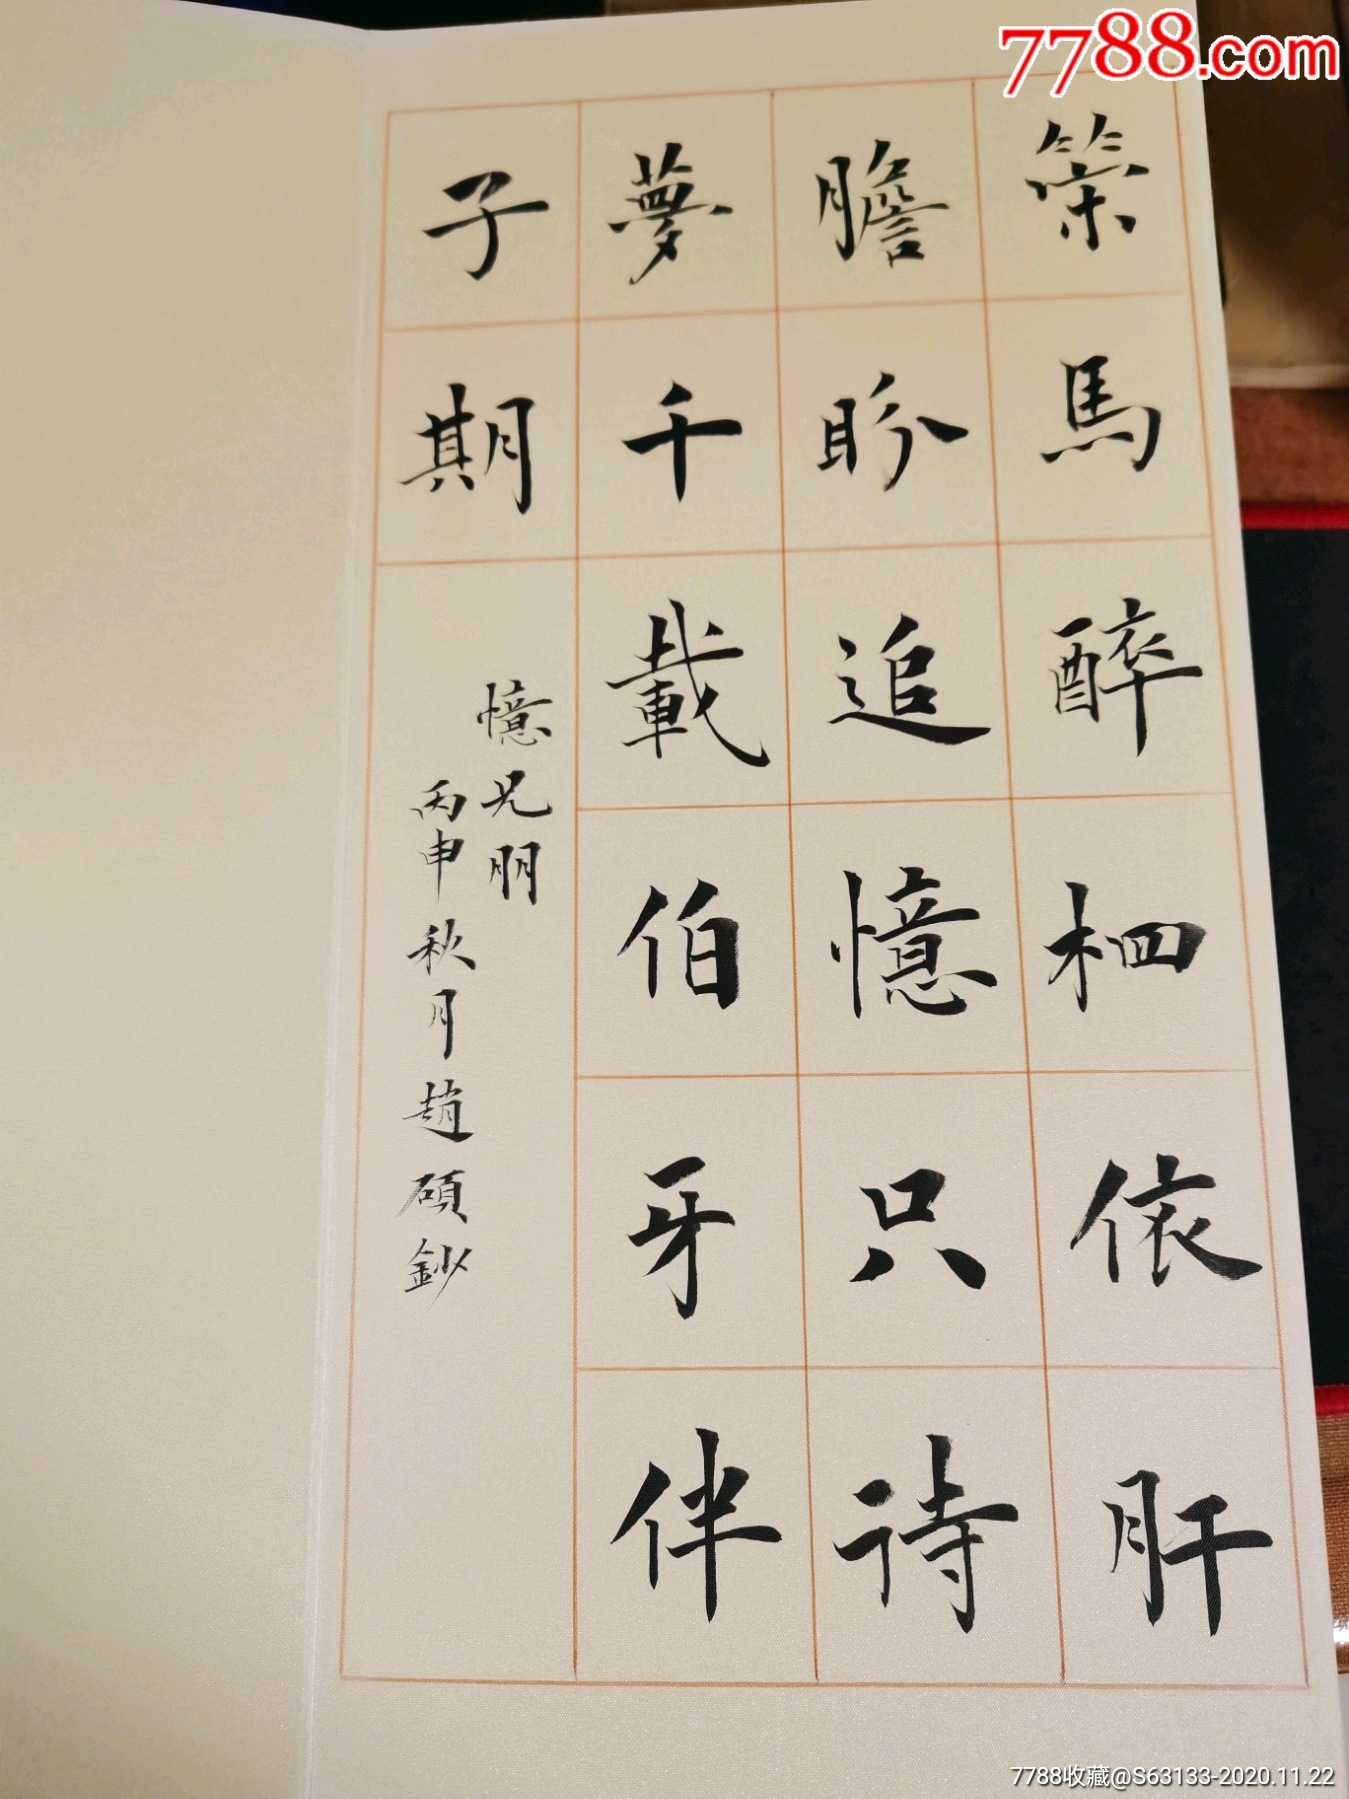 7788.com
策馬醉柶依肝
膽盼追憶只詩
夢千載伯牙伴
子期
憶兄朋
丙申秋月趙碩鈔
7788收藏@S63133-2020.11.22